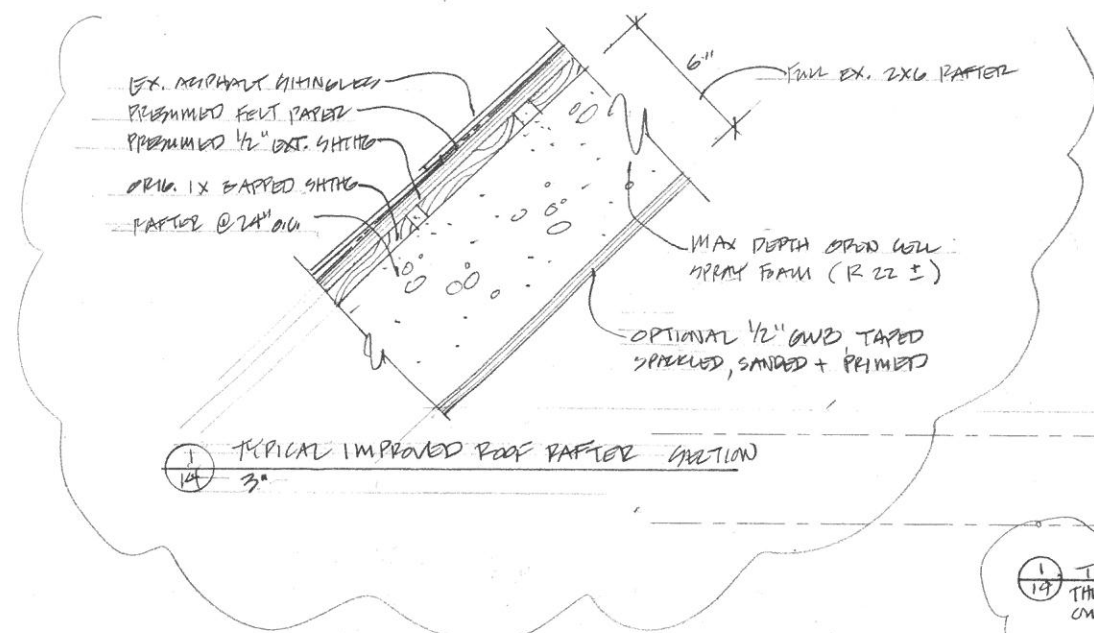 EX. ASPHALT SHINGLES
PRESUMED FELT PAPER
PRESUMED 1/2" EXT. SHTHG
ORIG. 1X GAPPED SHTHG
RAFTER @ 24" O.C.
6"
FULL EX. 2X6 RAFTER
MAX DEPTH OPEN CELL
SPRAY FOAM (R 22 ±)
OPTIONAL 1/2" GWB TAPED
SPACKLED, SANDED + PRIMED
1
14
TYPICAL IMPROVED ROOF RAFTER SECTION
3"
1
14